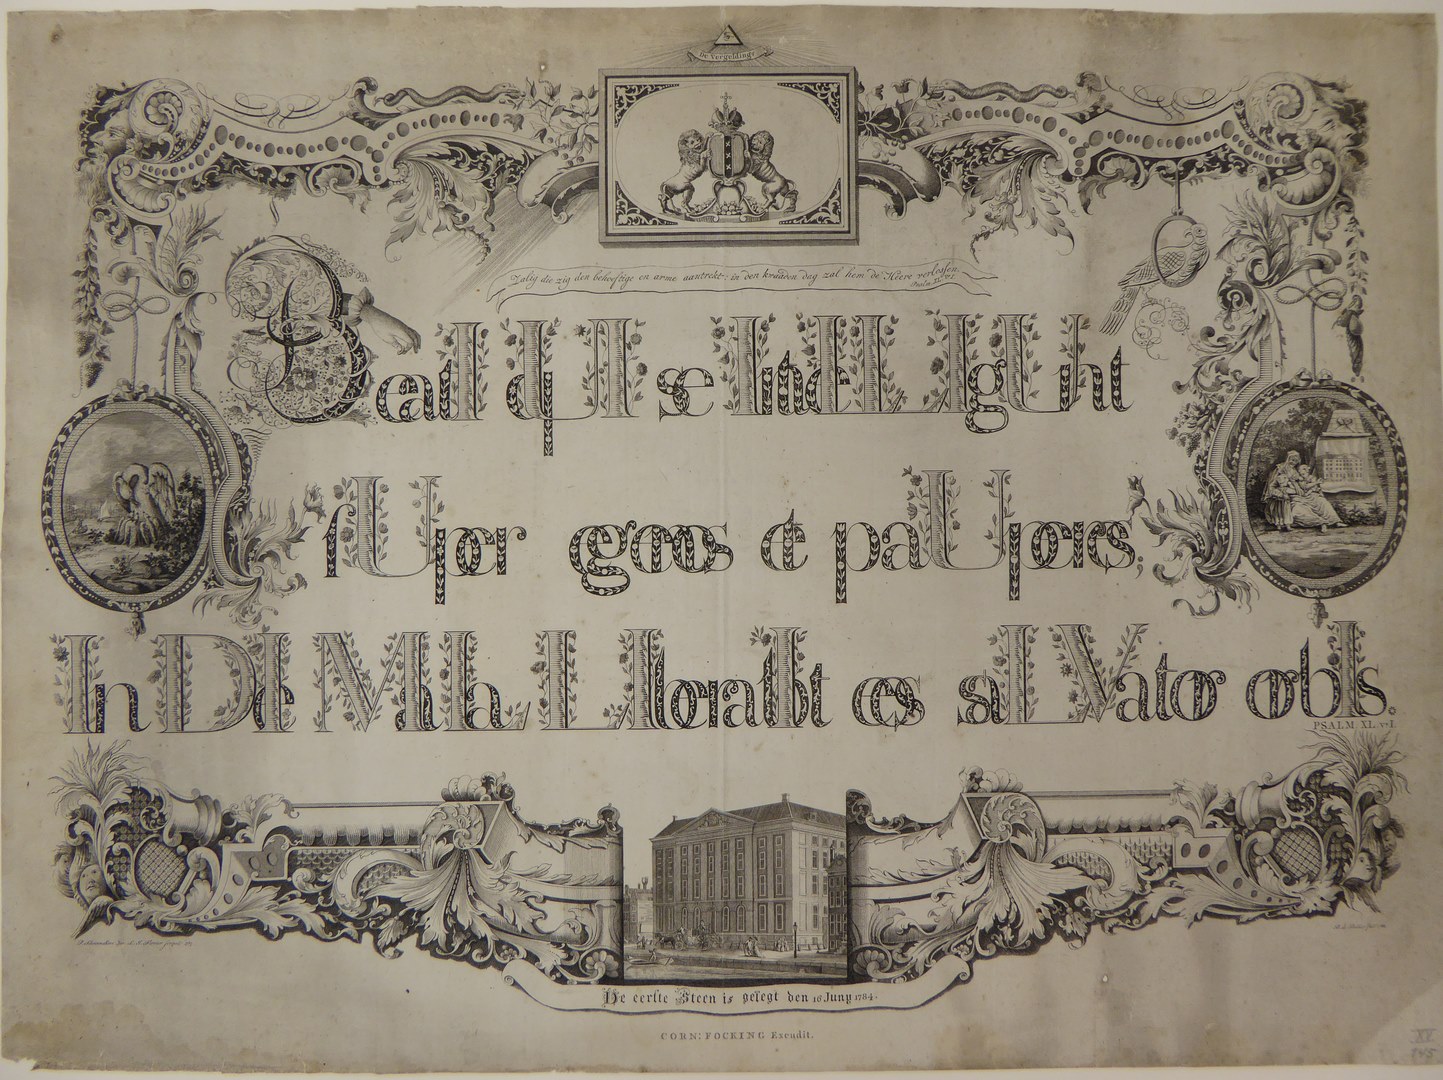 De Vergelding
Zalig die zig den behoeftige en arme aantrekt: in den kwaaden dag zal hem de Heere verlossen.
BeatI qUI se InteLLIgUnt
sUper egenos et paUperes;
In DIe MaLa LIberabIt eos saLVator orbIs.
PSALM XL. v. I.
De eerste Steen is gelegt den 16 Juny 1784.
CORN: FOCKING Excudit.
XV